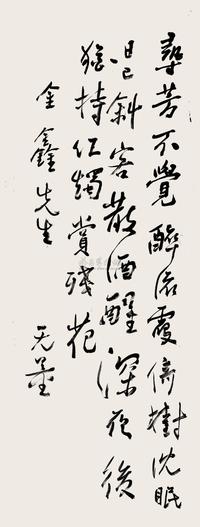 尋芳不覺醉流霞倚樹沈眠
日已斜客散酒醒深夜後
猶持红燭賞殘花
金鑫先生
无